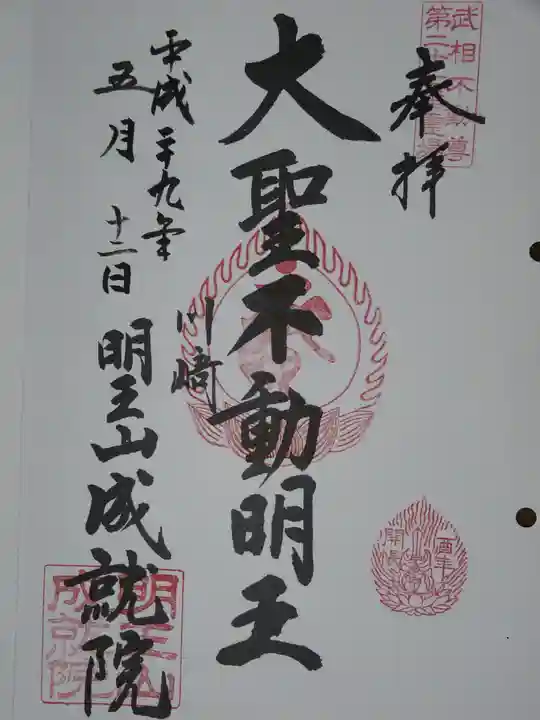 武相不動尊
第二
奉拝
大聖不動明王
川﨑
平成二十九年
五月十二日
明王山成就院
明王山
成就院
酉年
開扉